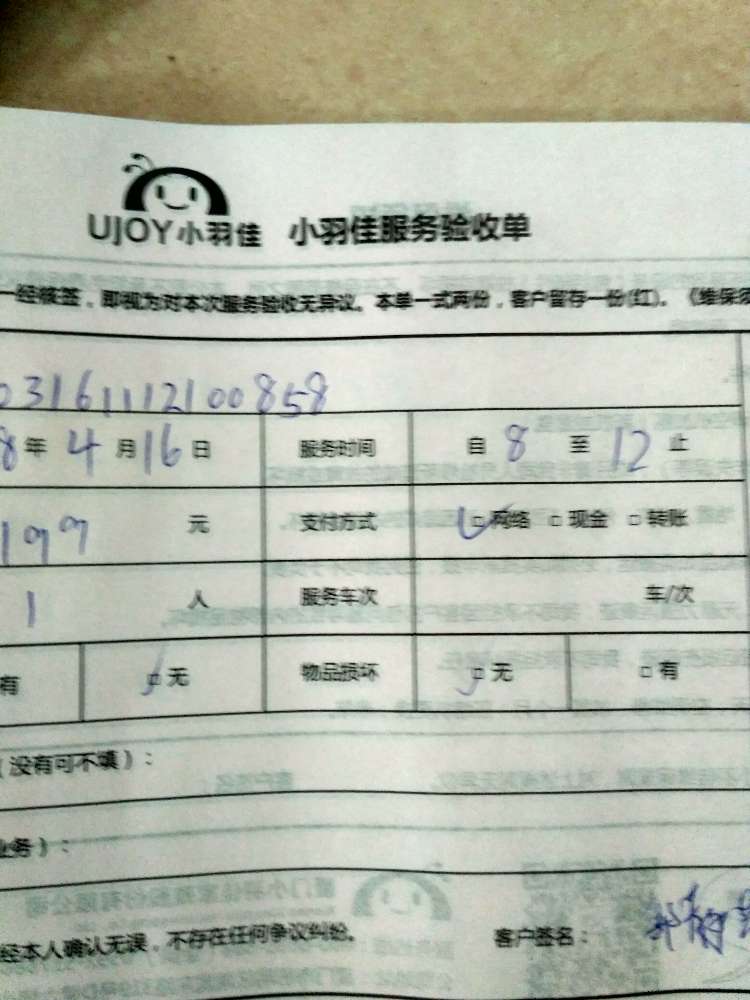 UJOY小羽佳 小羽佳服务验收单
一经核签，即视为对本次服务验收无异议。本单一式两份，客户留存一份(红)。《维保须
031611112100858
8年4月16日 服务时间 自8至12止
199元 支付方式 网络 现金 转账
1人 服务车次 车/次
有 无 物品损坏 无 有
（没有可不填）：
业务）：
经本人确认无误，不存在任何争议纠纷。 客户签名：